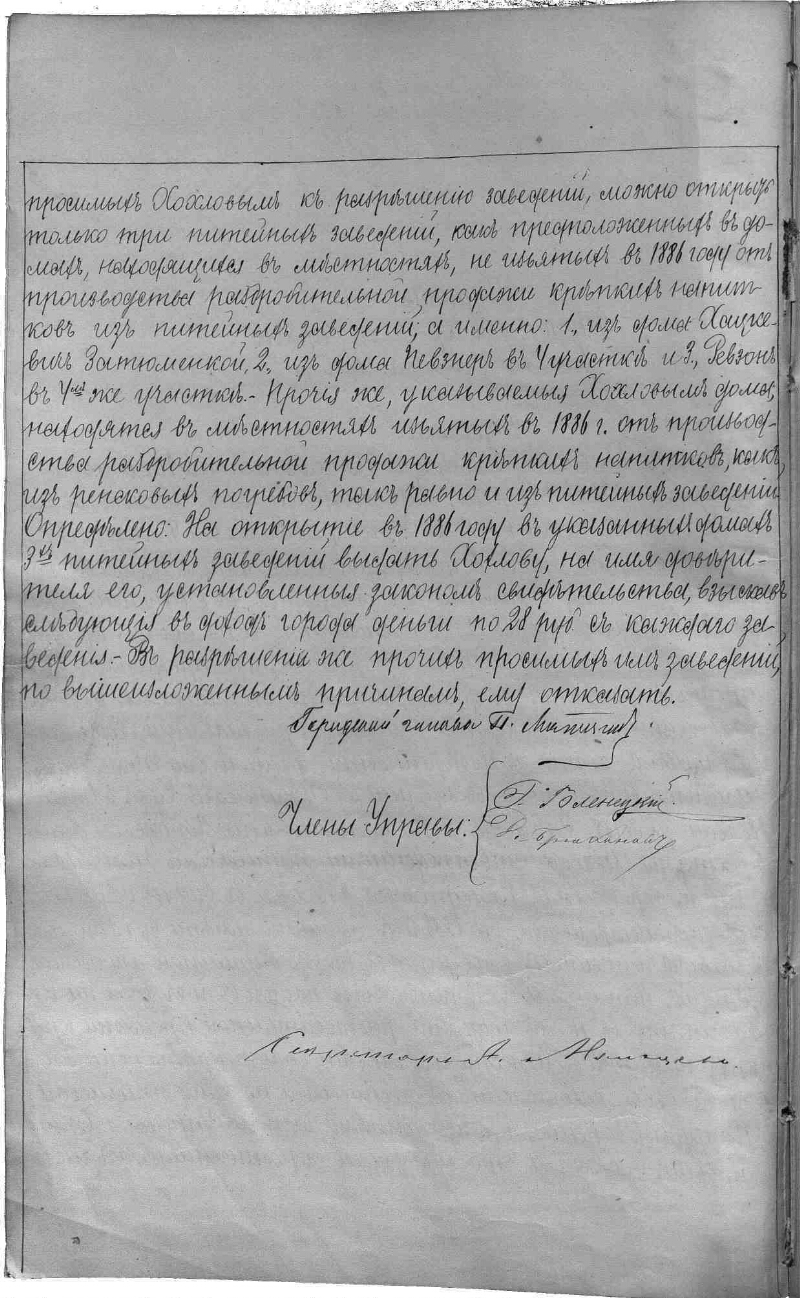 просимыхъ Хохловымъ къ разрѣшенію заведеній, можно открыть
только три питейныхъ заведеній, какъ предположенныхъ въ до-
махъ, находящихся въ мѣстностяхъ, не изъятыхъ въ 1886 году отъ
производства раздробительной продажи крѣпкихъ напит-
ковъ изъ питейныхъ заведеній, а именно: 1, изъ дома Хацке-
вичъ Затюменкой, 2, изъ дома Певзнеръ въ 4 участкѣ и 3, Ревзонъ
въ 4мъ же участкѣ. - Прочія же, указываемыя Хохловымъ дома,
находятся въ мѣстностяхъ изъятыхъ въ 1886 г. отъ производ-
ства раздробительной продажи крѣпкихъ напитковъ, какъ
изъ ренсковыхъ погребовъ, такъ равно и изъ питейныхъ заведеній.
Опредѣлено: На открытіе въ 1886 году въ указанныхъ домахъ
3хъ питейныхъ заведеній выдать Хохлову, на имя довѣри-
теля его, установленныя закономъ свидѣтельства, взыскавъ
слѣдующія въ доходъ города деньги по 28 руб. съ каждаго за-
веденія. - Въ разрѣшеніи же прочихъ просимыхъ имъ заведеній,
по вышеизложеннымъ причинамъ, ему отказать.
Городской голова П.
Члены Управы:
Г. Голенецкій.
Секретарь А.